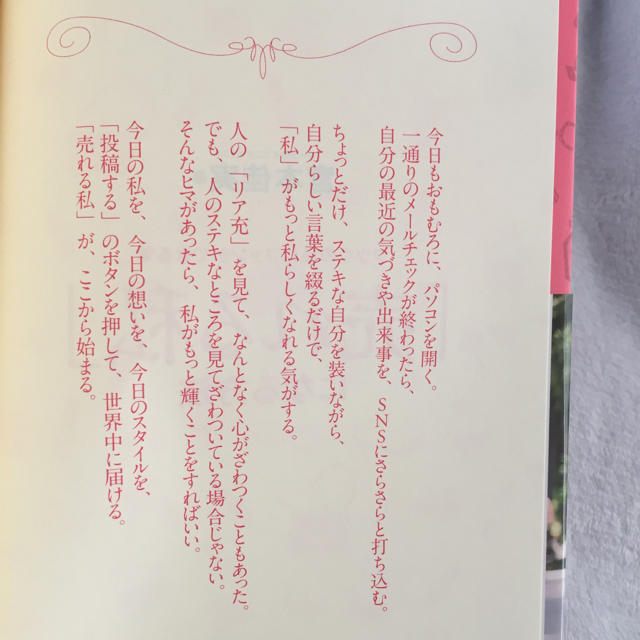 今日もおもむろに、パソコンを開く。
一通りのメールチェックが終わったら、
自分の最近の気づきや出来事を、SNSにさらさらと打ち込む。
ちょっとだけ、ステキな自分を装いながら、
自分らしい言葉を綴るだけで、
「私」がもっと私らしくなれる気がする。
人の「リア充」を見て、なんとなく心がざわつくこともあった。
でも、人のステキなところを見てざわついている場合じゃない。
そんなヒマがあったら、私がもっと輝くことをすればいい。
今日の私を、今日の想いを、今日のスタイルを、
「投稿する」のボタンを押して、世界中に届ける。
「売れる私」が、ここから始まる。